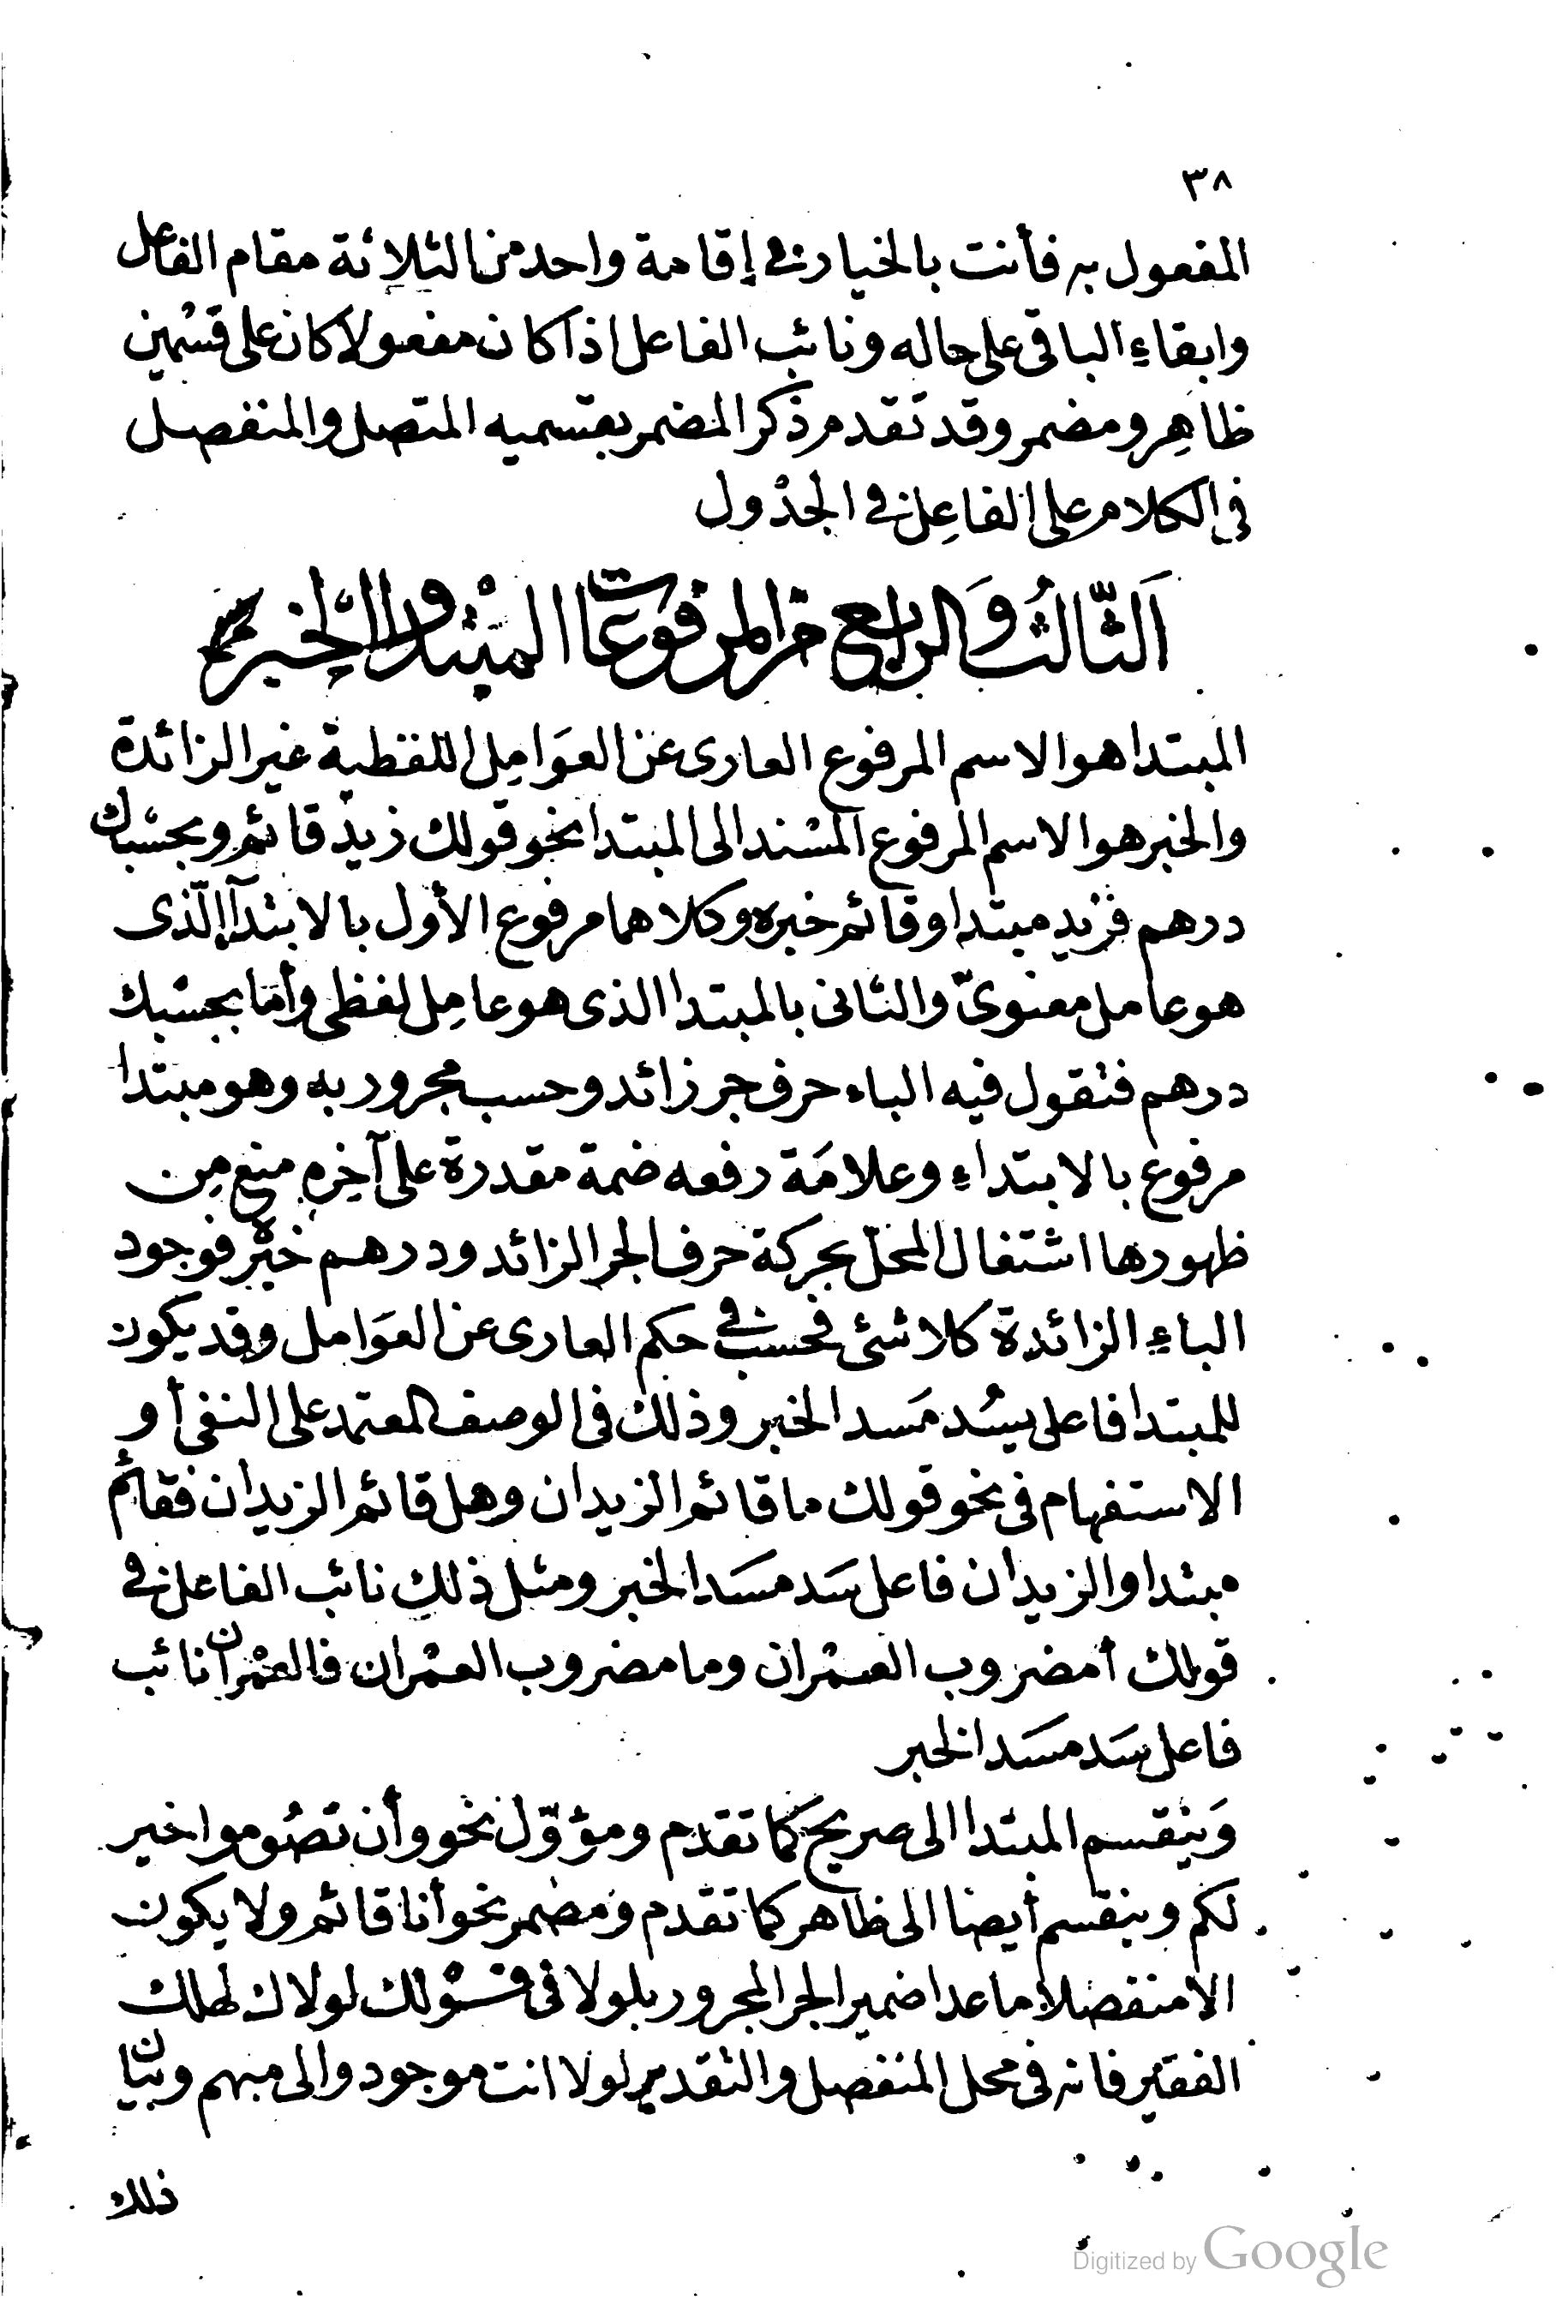 ٣٨
المفعول به فأنت بالخيار في إقامة واحد من الثلاثة مقام الفاعل
وابقاءِ الباقي على حاله ونائب الفاعل اذا كان مفعولا كان على قسْمين
ظاهِر ومضمر وقد تقدم ذكر المضمر بقسميه المتصل والمنفصل
في الكلام على الفاعِل في الجدْول
اَلثَّالثُ وَالرابع من المرفوعات المبْتدا والخبر
المبتدا هو الاسم المرفوع العارى عن العوَامِل اللفظية غير الزائدة
والخبر هو الاسم المرفوع المسْند الى المبتدا نحو قولك زيدٌ قائم وبحسْبك
درهم فزيد مبتدا وقائم خبره وكلاهما مرفوع الأول بالابتدآء الّذى
هو عامل معنوىّ والثانى بالمبتدا الذى هو عامِل لفظى وأمّا بحسْبك
درهم فتقول فيه الباء حرف جر زائد وحسب مجرور به وهو مبتدا
مرفوع بالابتداءِ وعلامَة رفعه ضمة مقدرة على آخِرهِ منع مِن
ظهورها اشتغال المحلّ بحركة حرف الجر الزائد ودرهم خبْره فوجود
الباءِ الزائدة كلا شئ فحسب في حكم العارى عن العوَامل وقد يكون
للمبتدا فاعل يسُد مَسد الخبر وذلك فى الوصف المعتمد على النفى أو
الاستفهام فى نحو قولك ما قائم الزيدان وهل قائم الزيدان فقائم
مبتدا والزيدان فاعل سَد مسَد الخبر ومثل ذلك نائب الفاعل في
قولك أمضروب العمْران وما مضروب العمْران فالعمْران نائب
فاعل سَد مسَد الخبر
وَينقسم المبتدا الى صريح كما تقدم ومؤوّل نحو وأن تصُوموا خير
لكم وينقسم أيضا الى ظاهر كما تقدم ومضمر نحو أنا قائم ولا يكون
الا منفصلا ما عدا ضمير الجر المجرور بلولا فى قوْلك لولاك لهلك
الفقير فانه فى محل المنفصل والتقدير لولا انت موجود والى مبهم وبيان
ذلك
Digitized by Google